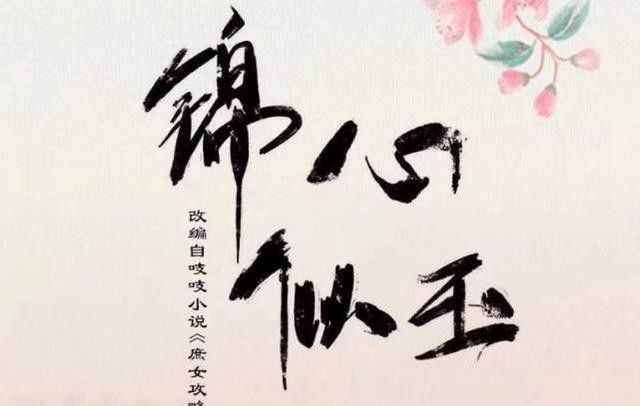 锦心似玉
改编自吱吱小说《庶女攻略